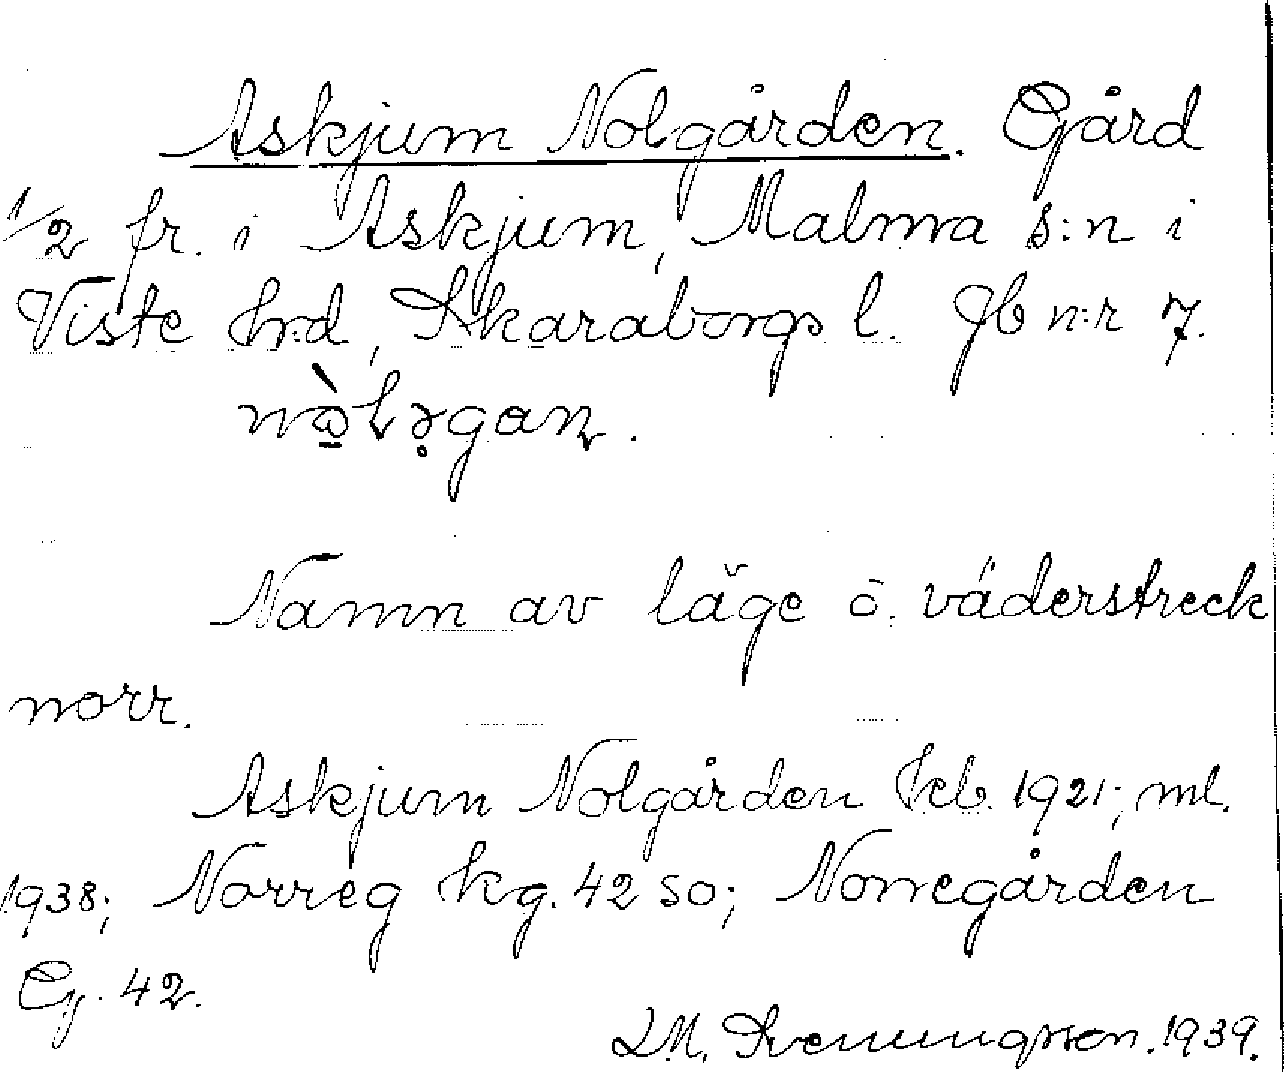 Askjum Nolgården. Gård
1/2 fr. i Askjum, Malma s:n i
Viste hrd, Skaraborgs l. Jb n:r 7.
Namn av läge o. väderstreck
norr.
Askjum Nolgården kb. 1921; ml.
1938; Norreg kg. 42 SO; Norregården
Gg. 42.
L.M. Svenungsson. 1939.